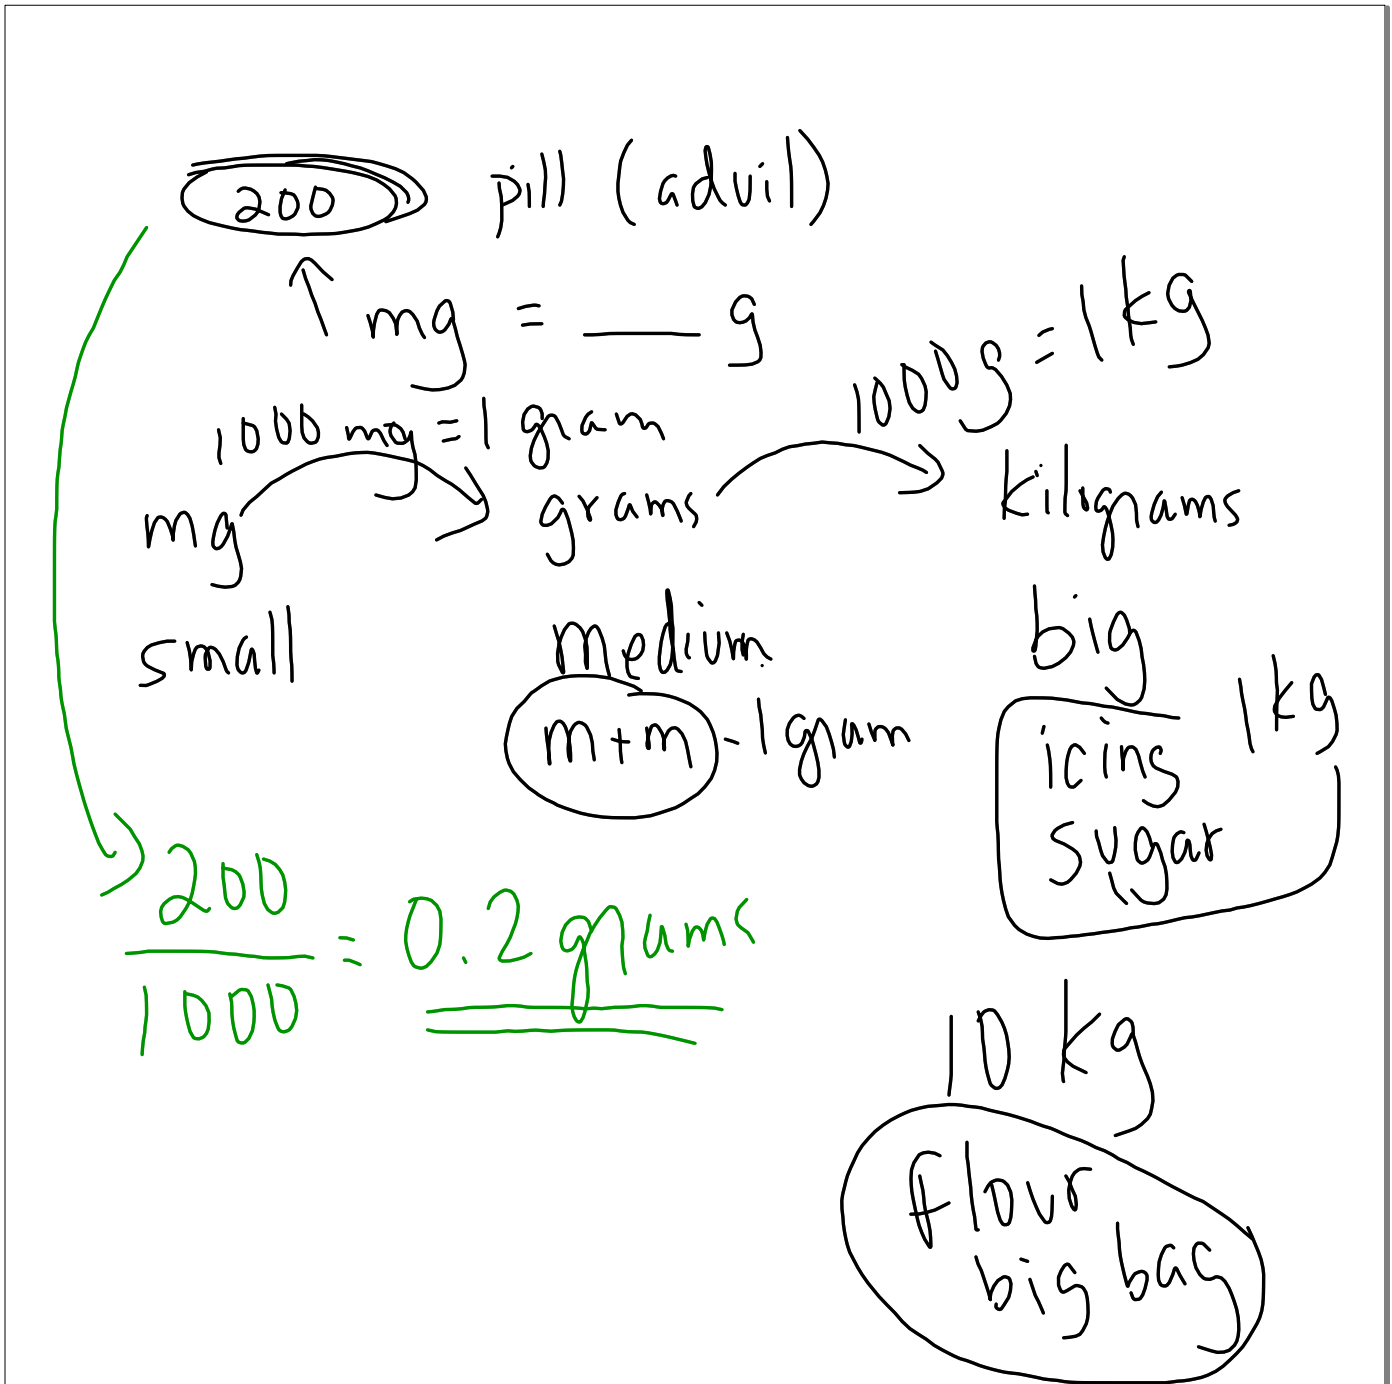 200 pill (advil)
mg = ___ g
1000g = 1 kg
1000 mg = 1 gram
mg grams kilograms
small medium big
m+m - 1 gram
1 kg
icing
sugar
200
1000
= 0.2 grams
10 kg
flour
big bag